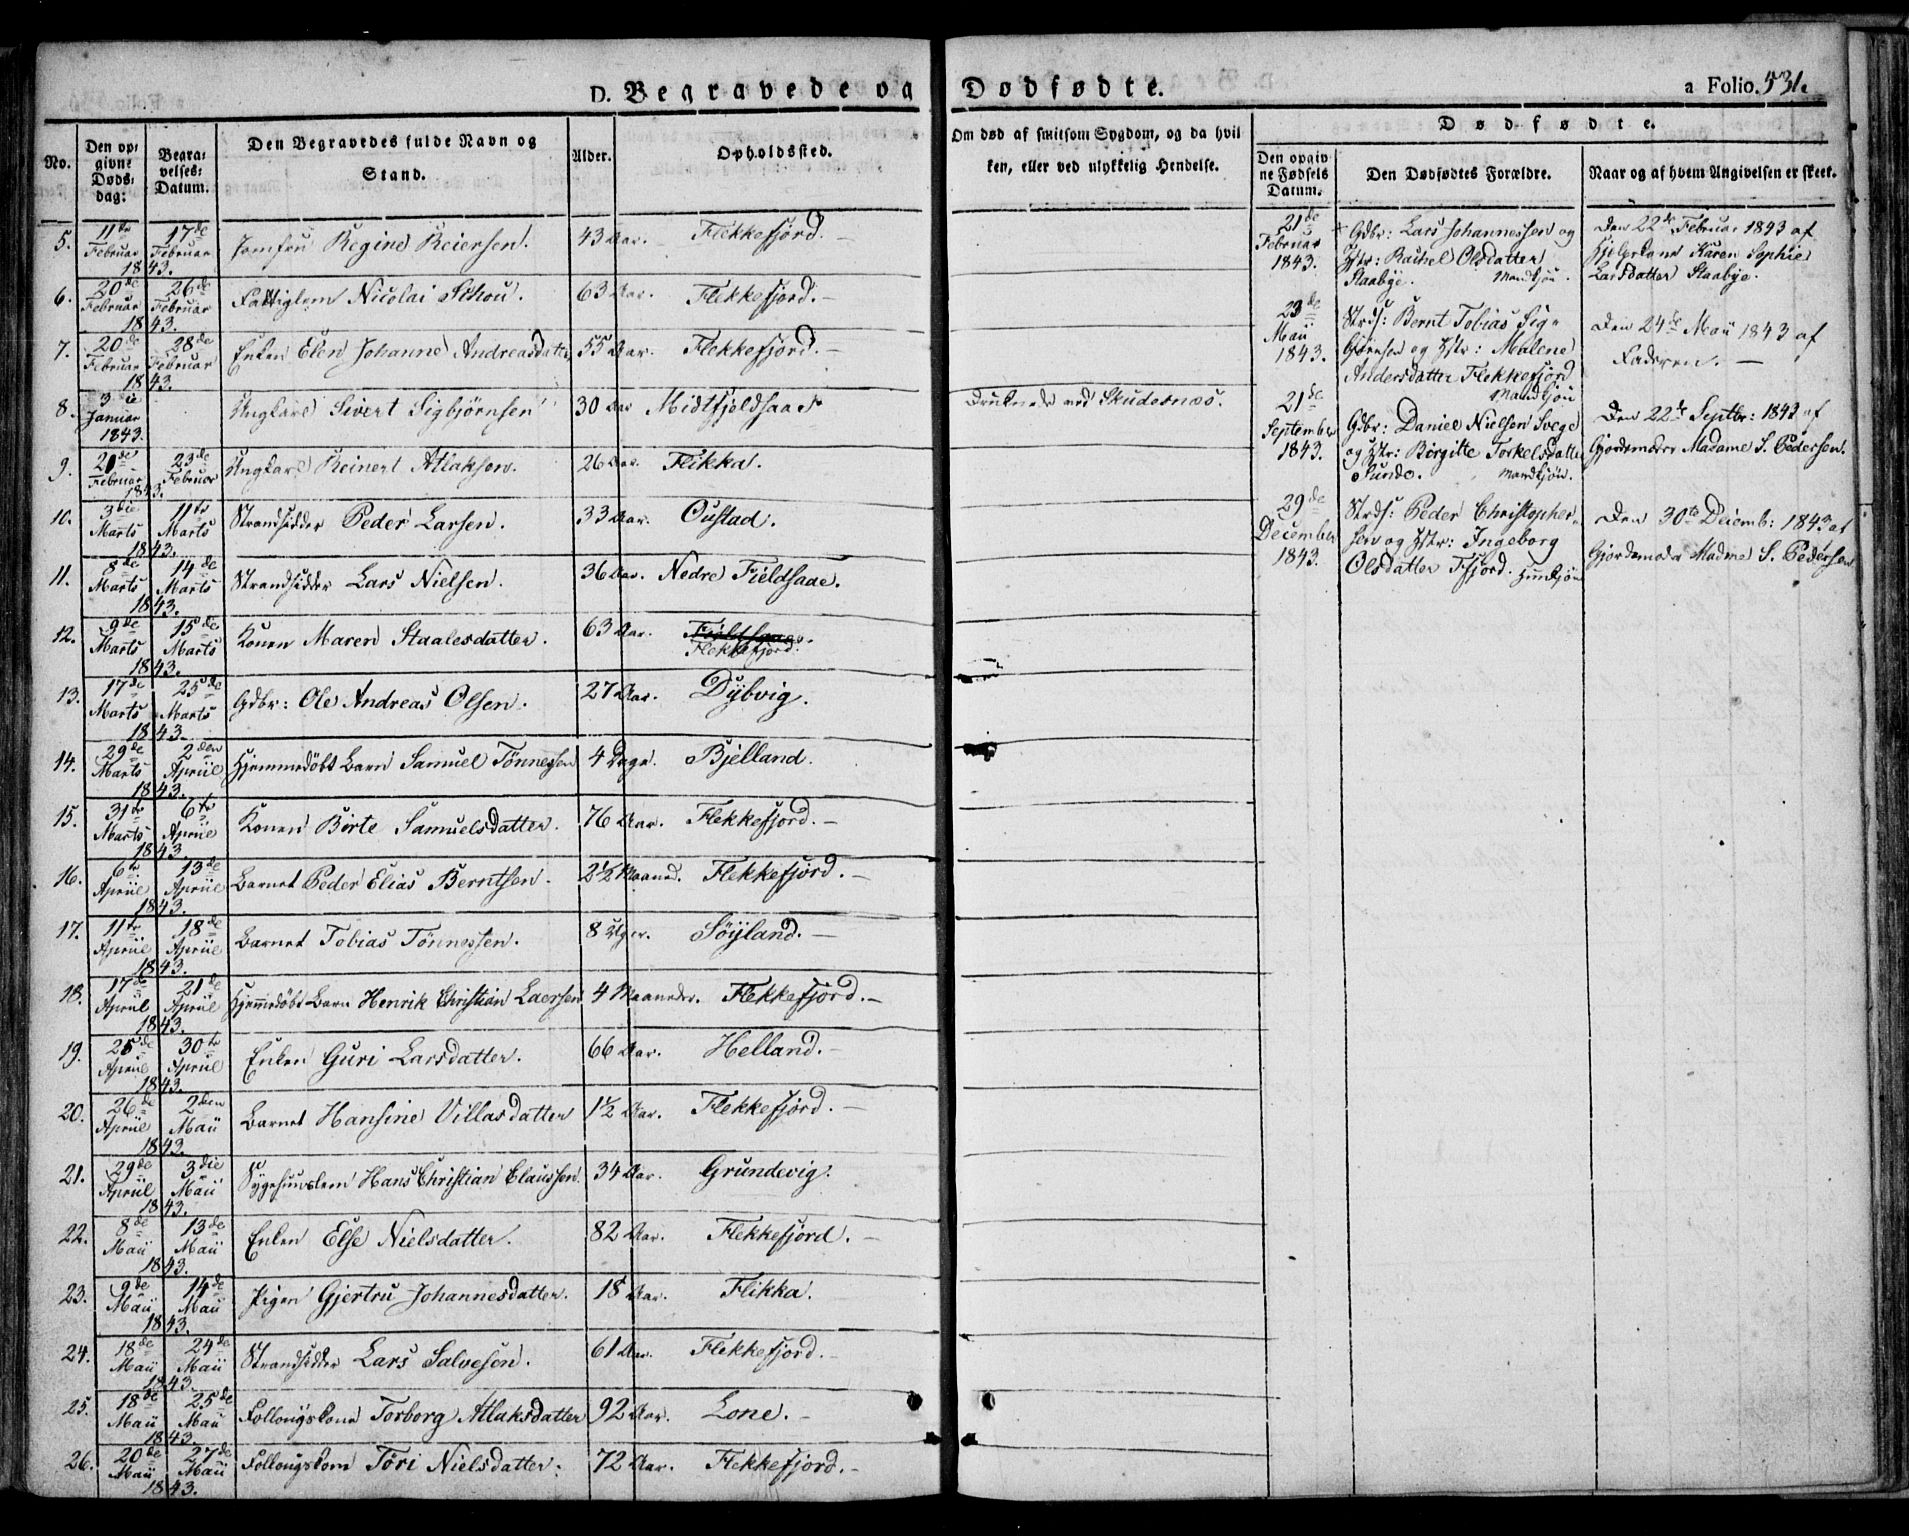 D. Begravede og Dødfødte. a Folio. 531.
No. Den opgivne Dødsdag: Begravelses: Datum. Den Begravedes fulde Navn og Stand. Alder. Opholdssted. Om død af smitsom Sygdom, og da hvilken, eller ved ulykkelig Hendelse.
5. 11te Februar 17de Februar 1843. Jomfru Regine Reiersen. 43 Aar. Flekkefjord.
6. 20de Februar 26de Februar 1843. Fattiglem Nicolai Schou. 63 Aar. Flekkefjord.
7. 20de Februar 28de Februar 1843. Enken Elen Johanne Andreasdatter 55 Aar. Flekkefjord.
8. 3die Januar 1843. Ungkarl Sivert Sigbjørnsen 30 Aar Midtfjeldsaae Druknede ved Skudesnæs.
9. 20de Februar 23de Februar 1843. Ungkarl Reinert Atlaksen. 26 Aar. Flikka.
10. 3die Marts 11te Marts 1843. Strandsidder Peder Larsen. 33 Aar. Oustad.
11. 8de Marts 14de Marts 1843. Strandsidder Lars Nielsen. 36 Aar. Nedre Fieldsaae.
12. 9de Marts 15de Marts 1843. Konen Maren Staalesdatter. 63 Aar. Fieldsaae. Flekkefjord.
13. 17de Marts 25de Marts 1843. Gdbr: Ole Andreas Olsen. 27 Aar. Dybvig.
14. 29de Marts 2den Apriil 1843. Hjemmedøbt Barn Samuel Tønnessen 4 Dage. Bjelland.
15. 31te Marts 6te Apriil 1843. Konen Birte Samuelsdatter. 76 Aar. Flekkefjord.
16. 6te Apriil 13de Apriil 1843. Barnet Peder Elias Berntsen. 2½ Maaned. Flekkefjord.
17. 11te Apriil 18de Apriil 1843. Barnet Tobias Tønnessen. 8 Uger. Søyland.
18. 17de Apriil 21de Apriil 1843. Hjemedøbt Barn Henrik Christian Laersen 4 Maaneder. Flekkefjord.
19. 25de Apriil 30te Apriil 1843. Enken Guri Larsdatter. 66 Aar. Helland.
20. 26de Apriil 2den Maii 1843. Barnet Hansine Villasdatter 1½ Aar. Flekkefjord.
21. 29de Apriil 3die Maii 1843. Sygehuuslem Hans Christian Claussen. 34 Aar. Grundevig.
22. 8de Maii 13de Maii 1843. Enken Else Nielsdatter. 82 Aar. Flekkefjord.
23. 9de Maii 14de Maii 1843. Pigen Gjertru Johannesdatter. 18 Aar. Flikka.
24. 18de Maii 24de Maii 1843. Strandsidder Lars Salvesen. 61 Aar. Flekkefjord.
25. 18de Maii 25de Maii 1843. Follougskone Torborg Atlaksdatter 92 Aar. Lone.
26. 20de Maii 27de Maii 1843. Follougskone Tori Nielsdatter. 72 Aar. Flekkefjord.
Dødfødte.
Den opgivne Fødsels Datum. Den Dødfødtes Forældre. Naar og af hvem Angivelsen er skeet.
21de Februar 1843. Gdbr: Lars Johannessen og Hstr: Rachel Olsdatter Staabye. Mandkjøn. Den 22de Februar 1843 af Hjelpekone Karen Sophie Larsdatter Staabye.
23de Maii 1843. Strds: Bernt Tobias Sigbjørnsen og Hstr: Malene Andersdatter Flekkefjord Mandkjøn Den 24de Maii 1843 af Faderen.
21de September 1843. Gdbr: Daniel Nielsen Svege og Hstr: Birgitte Torkelsdatter Sunde. Mandkjøn. Den 22de Septbr: 1843 af Gjordemoder Madame S. Pedersen.
29de December 1843. Strds: Peder Christophersen og Hstr: Ingeborg Olsdatter Fjord. Quindkjøn Den 30te Decemb: 1843 af Gjordemoder Madme S. Pedersen